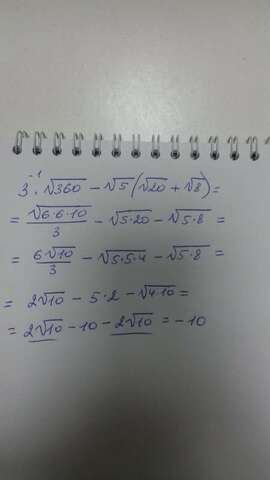 3⁻¹ · √360 − √5 (√20 + √8) =
= √(6·6·10)/3 − √(5·20) − √(5·8) =
= 6√10/3 − √(5·5·4) − √(5·8) =
= 2√10 − 5·2 − √(4·10) =
= 2√10 − 10 − 2√10 = −10